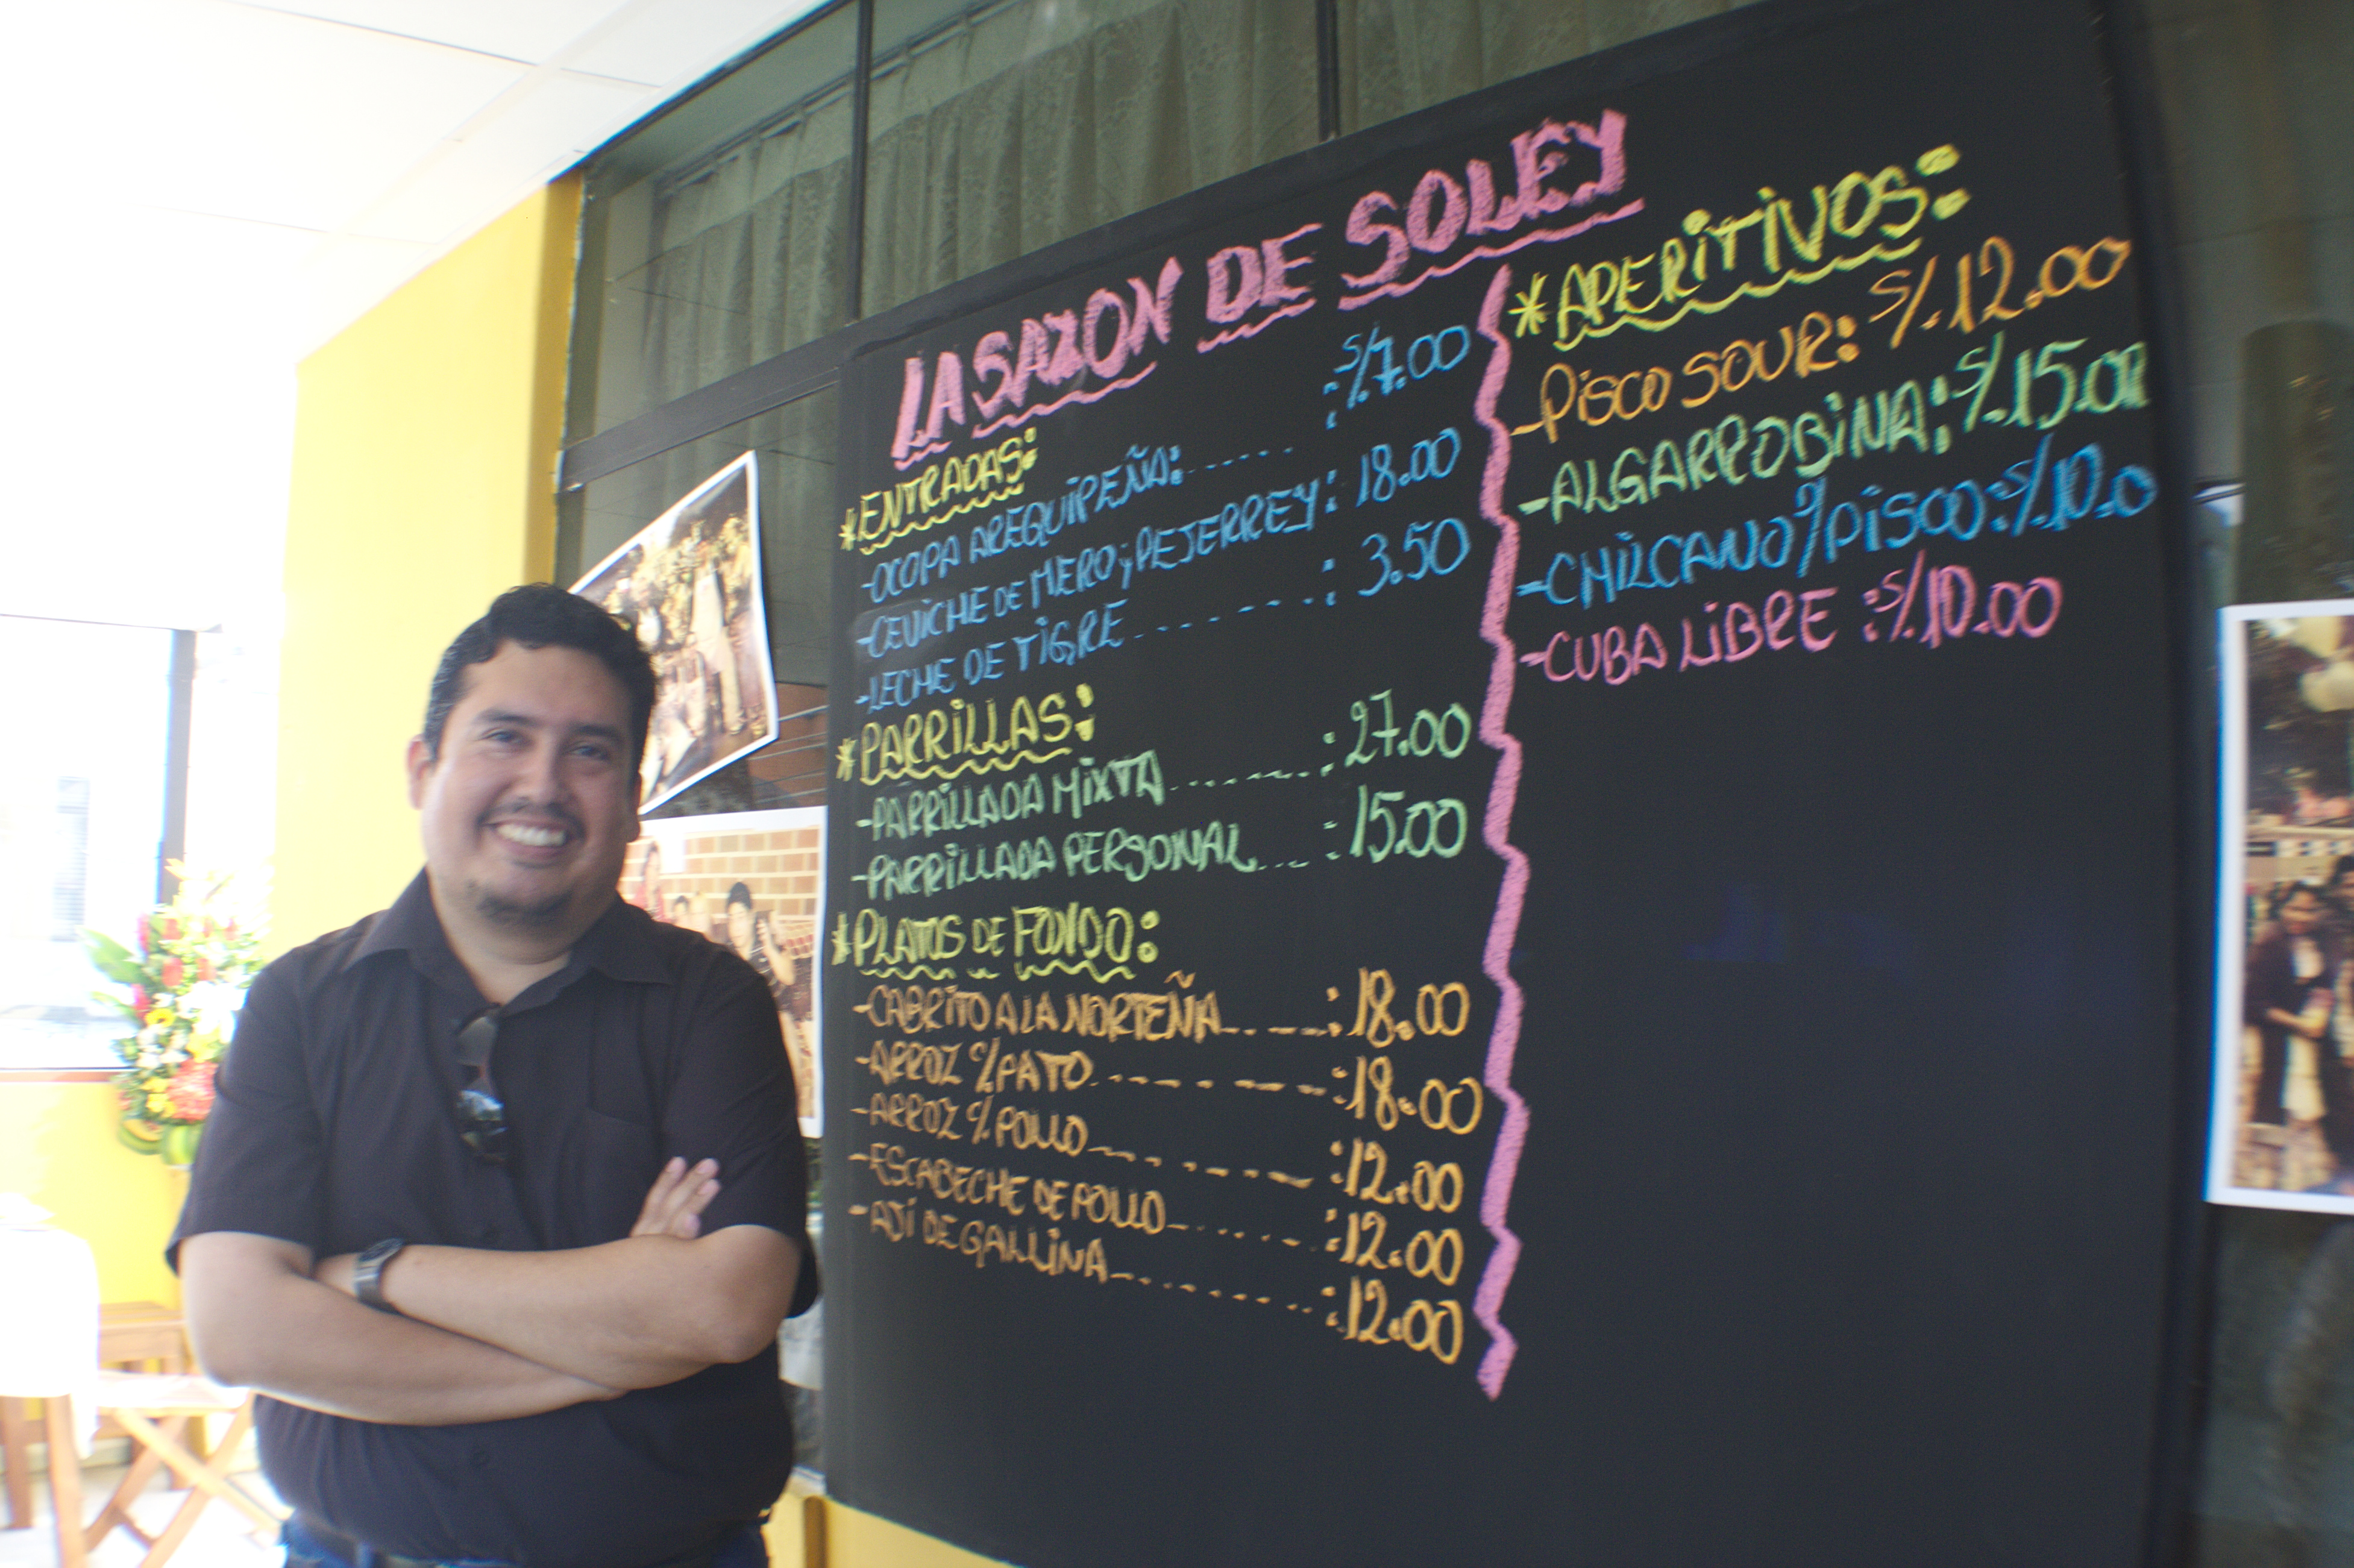 LA SAZON DE SOLEY
*ENTRADAS:
-OCOPA AREQUIPEÑA:...... : S/.7.00
-CEVICHE DE MERO y PEJERREY: 18.00
-LECHE DE TIGRE........ : 3.50
*PARRILLAS:
-PARRILLADA MIXTA....... : 27.00
-PARRILLADA PERSONAL..... : 15.00
*PLATOS DE FONDO:
-CABRITO A LA NORTEÑA.....: 18.00
-ARROZ c/PATO.........: 18.00
-ARROZ c/POLLO........: 12.00
-ESCABECHE DE POLLO.......: 12.00
-AJÍ DE GALLINA..........: 12.00
*APERITIVOS:
-PISCO SOUR: S/.12.00
-ALGARROBINA: S/.15.00
-CHILCANO c/PISCO: S/.10.0
-CUBA LIBRE : S/.10.00